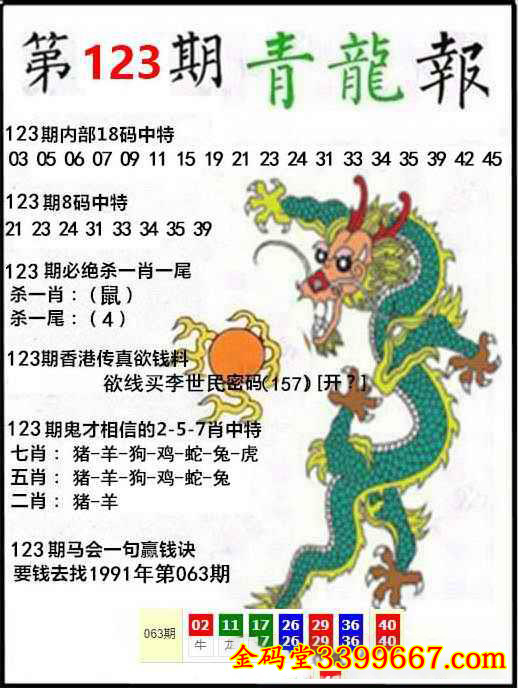 第123期青龍報
123期内部18码中特
03 05 06 07 09 11 15 19 21 23 24 31 33 34 35 39 42 45
123期8码中特
21 23 24 31 33 34 35 39
123期必绝杀一肖一尾
杀一肖：（鼠）
杀一尾：（4）
123期香港传真欲钱料
欲线买李世民密码(157)[开?]
123期鬼才相信的2-5-7肖中特
七肖：猪-羊-狗-鸡-蛇-兔-虎
五肖：猪-羊-狗-鸡-蛇-兔
二肖：猪-羊
123期马会一句赢钱诀
要钱去找1991年第063期
063期 02 11 17 26 29 36 40
牛 龙
金码堂3399667.com